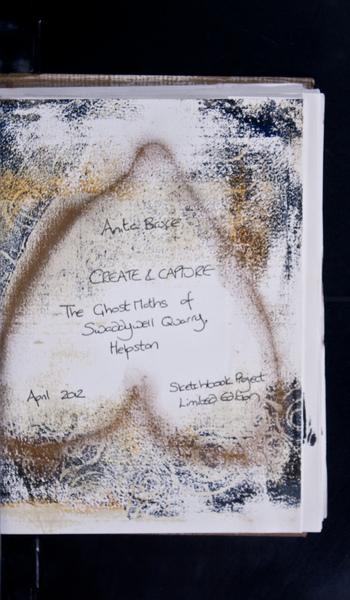 Anita Bruce
CREATE & CAPTURE
The Ghost Moths of
Swaddywell Quarry,
Helpston
April 2012
Sketchbook Project
Limited Edition